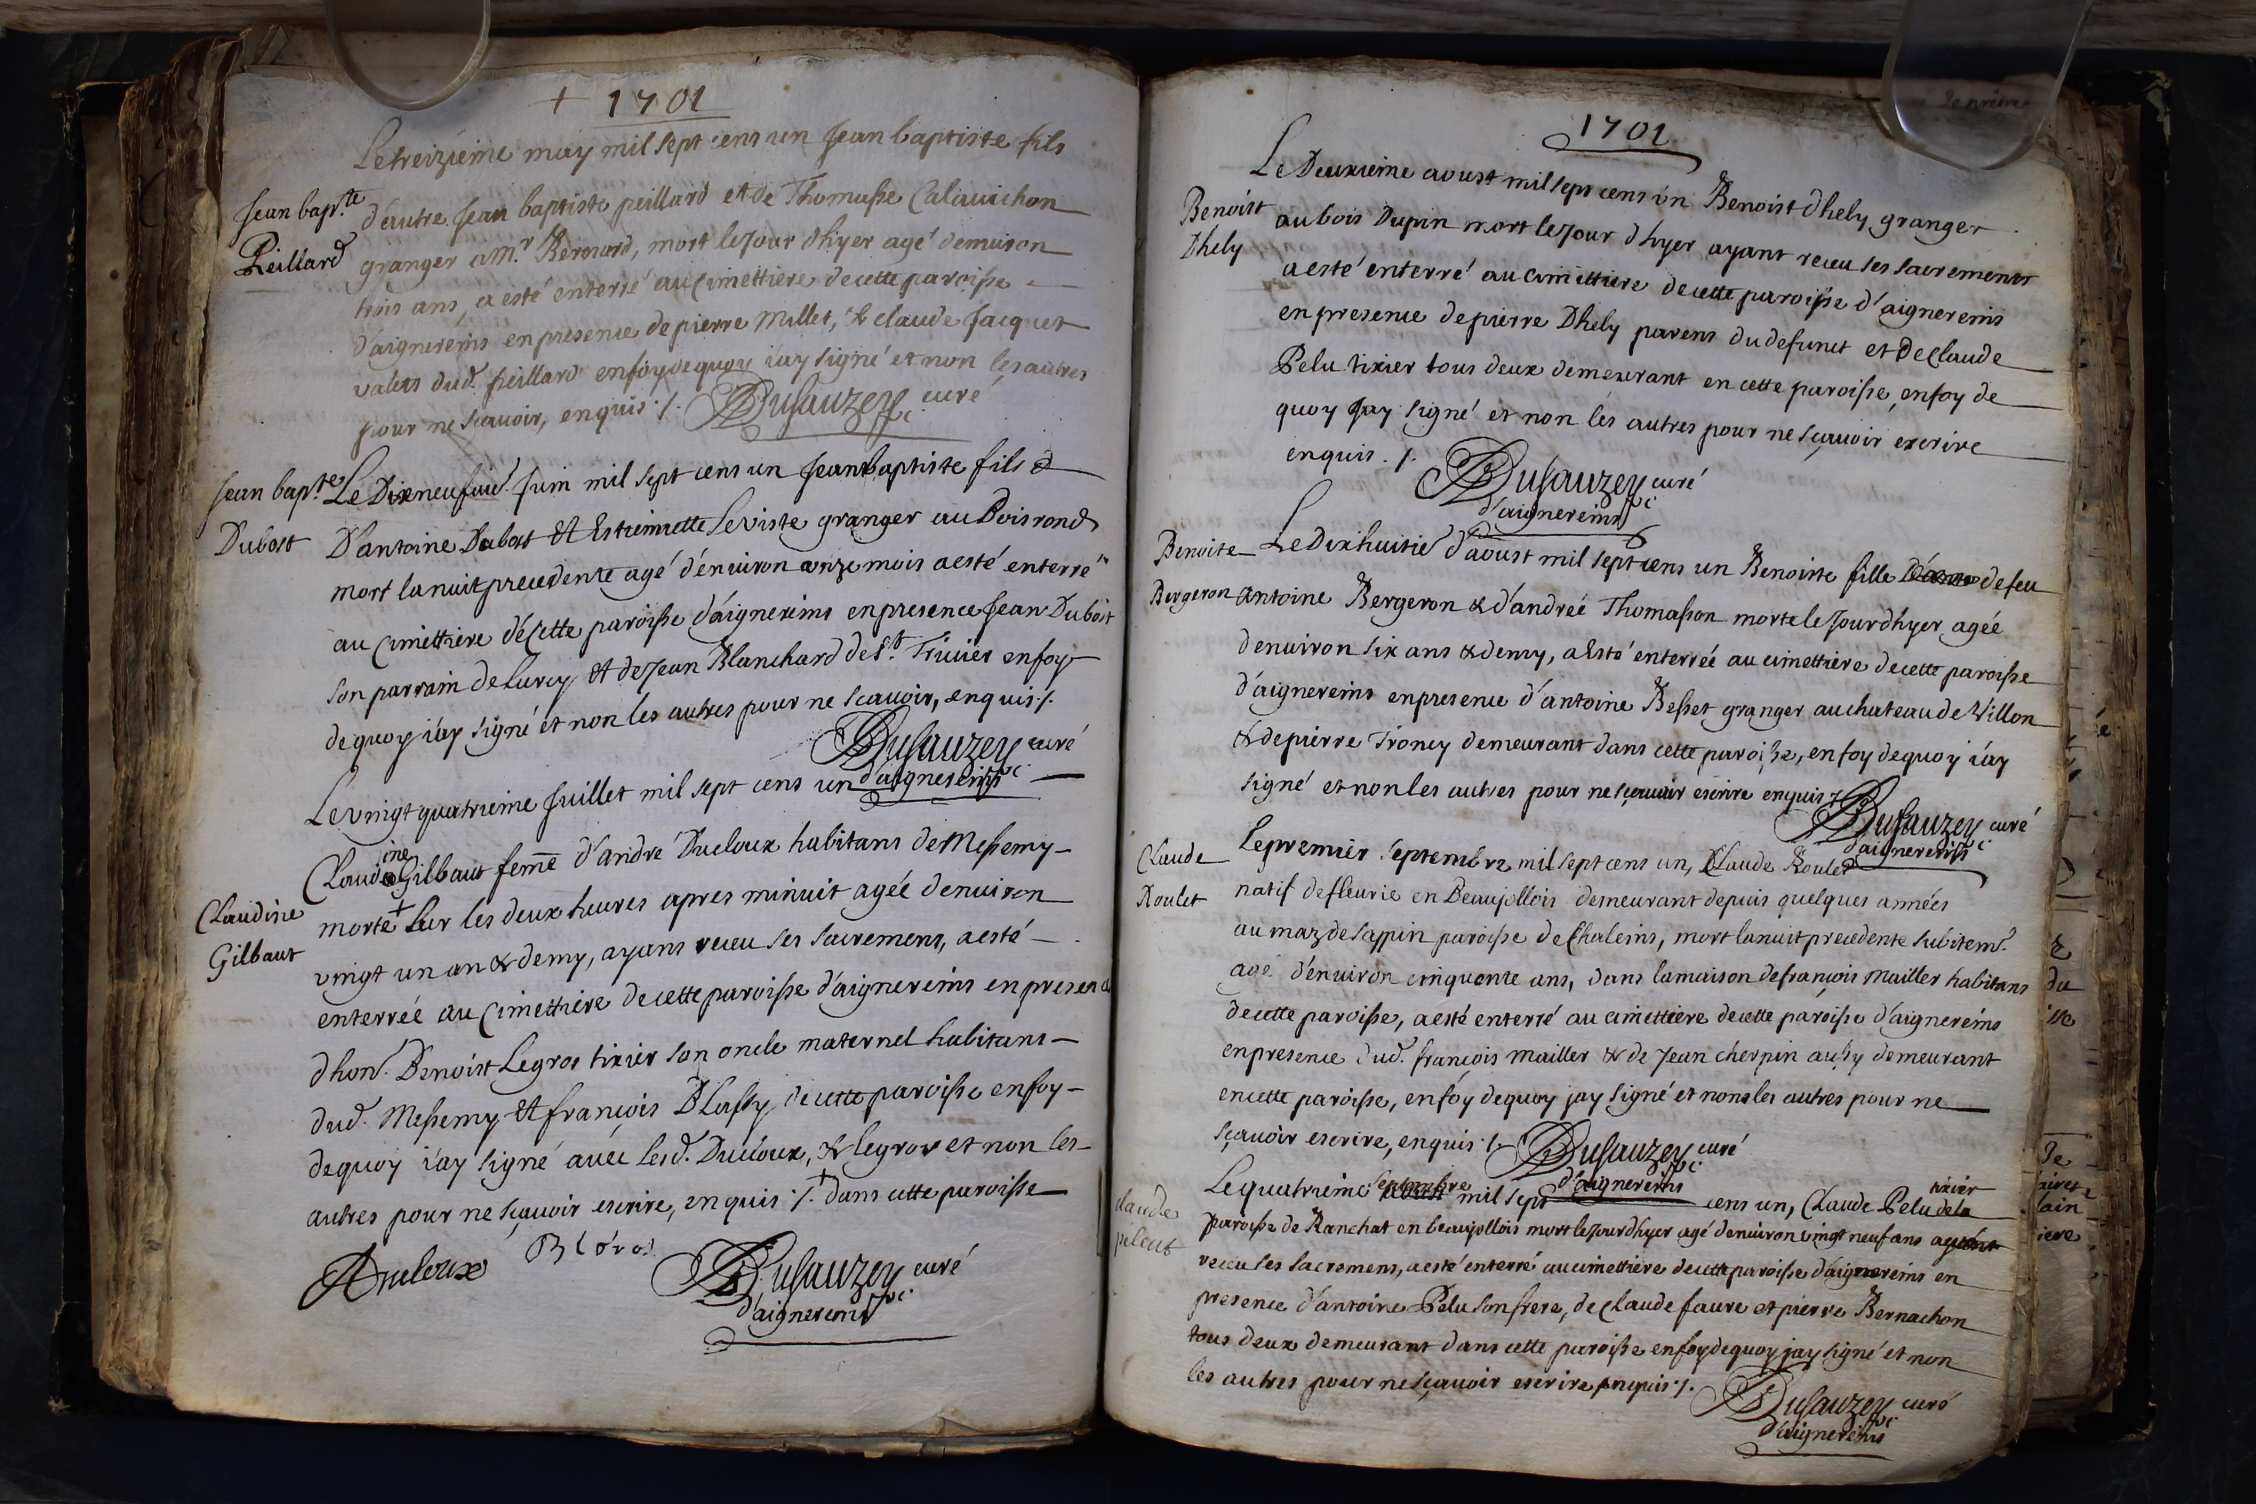 + 1701
Le treiziéme may mil sept cens un Jean baptiste fils
Jean bap.te
Peillard
d'autre Jean baptiste peillard et de Thomasse Calauichon
granger a M.r Bernard, mort le Jour dhyer agé denuiron
trois ans, a esté enterré au cimettiere de cette paroisse
d'aignereins en presence de pierre Millet, & claude Jacquet
valets dud. peillard en foy de quoy i'ay signé et non les autres
pour ne scauoir, enquis ./. Dusauzey curé
Jean bap.te
Dubost
Le Dixneufuié. Juin mil sept cens un Jean baptiste fils
D'antoine Dubost Et Estiennette Seviste granger au Boisrond
mort la nuit precedente agé d'énuiron onze mois a esté enterré
au cimettiere dé cette paroisse d'áignereins en presence Jean Dubost
son parrain de Lurcy Et de Jean Blanchard de S.t Triuier en foy
de quoy i'ay signé et non les autres pour ne scauoir, enquis ./.
Dusauzey curé
d'aignereins
Le vingt quatrieme Juillet mil sept cens un
Claudine
Gilbaut
Claudine Gilbaut femme d'andré Ducloux habitans de Messemy
morte + sur les deux heures apres minuit agée denuiron
vingt un an & demy, ayans receu ses sacremens, a esté
enterréé au cimettiere de cette paroisse d'aignereins en presence
dhon. Benoist Legros tixier son oncle maternel habitans
dud. Messemy Et françois Blassy de cette paroisse en foy
de quoy i'ay signé auéc lesd. Ducloux, & legros et non les
autres pour ne sçauoir escrire, enquis ./. + dans cette paroisse
Aducloux
B l gros
Dusauzey curé
d'aignereins
1701
Le Deuxieme aoust mil sept cens un Benoist dhely granger
Benoist
Dhely
au bois Dupin mort le Jour dhyer ayant receu ses sacrements
a esté enterré au cimettiere de cette paroisse d'aignereins
en presence de pierre Dhely parens du defunct et De claude
Pelu tixier tous deux demeurant en cette paroisse, en foy de
quoy Jay signé et non lés autres pour ne sçauoir escrire
enquis ./.
Dusauzey curé
d'aignereins
Benoite
Bergeron
Le Dixhuitié d'aoust mil sept cens un Benoiste fille de feu
antoine Bergeron & d'andréé Thomasson morte le Jour dhyer agéé
denuiron six ans & demy, a Esté enterréé au cimettiere de cette paroisse
d'aignereins en presence d'antoine Besset granger au chateau de Villon
& de pierre Troncy demeurant dans cette paroisse, en foy de quoy i'ay
signé et non les autres pour ne sçauoir escrire enquis ./.
Dusauzey curé
d'aignereins
Claude
Roulet
Le premier septembre mil sept cens un, Claude Roulet
natif de fleurie en Beaujollois demeurant depuis quelques années
au maz de sappin paroisse de Chaleins, mort la nuit precedente subitem.t
agé d'énuiron cinquante ans, dans la maison de françois Mailler habitans
de cette paroisse, a esté enterré au cimettiere de cette paroisse d'aignereins
en presence dud. françois Mailler & de Jean cherpin aussy demeurant
en cette paroisse, en foy de quoy jay signé et non les autres pour ne
sçauoir escrire, enquis ./. Dusauzey curé
d'aignereins
claude
Le quatrieme septembre mil sept cens un, Claude Pelu tixier de la
paroisse de Ranchat en beaujollois mort le Jour dhyer agé denuiron vingt neuf ans ayant
receu ses sacremens, a esté enterré au cimettiere de cette paroisse d'aignereins en
presence d'antoine Pelu son frere, de claude faure et pierre Bernachon
tous deux demeurant dans cette paroisse en foy de quoy jay signé et non
les autres pour ne sçauoir escrire enquis ./.
Dusauzey curé
d'aignereins